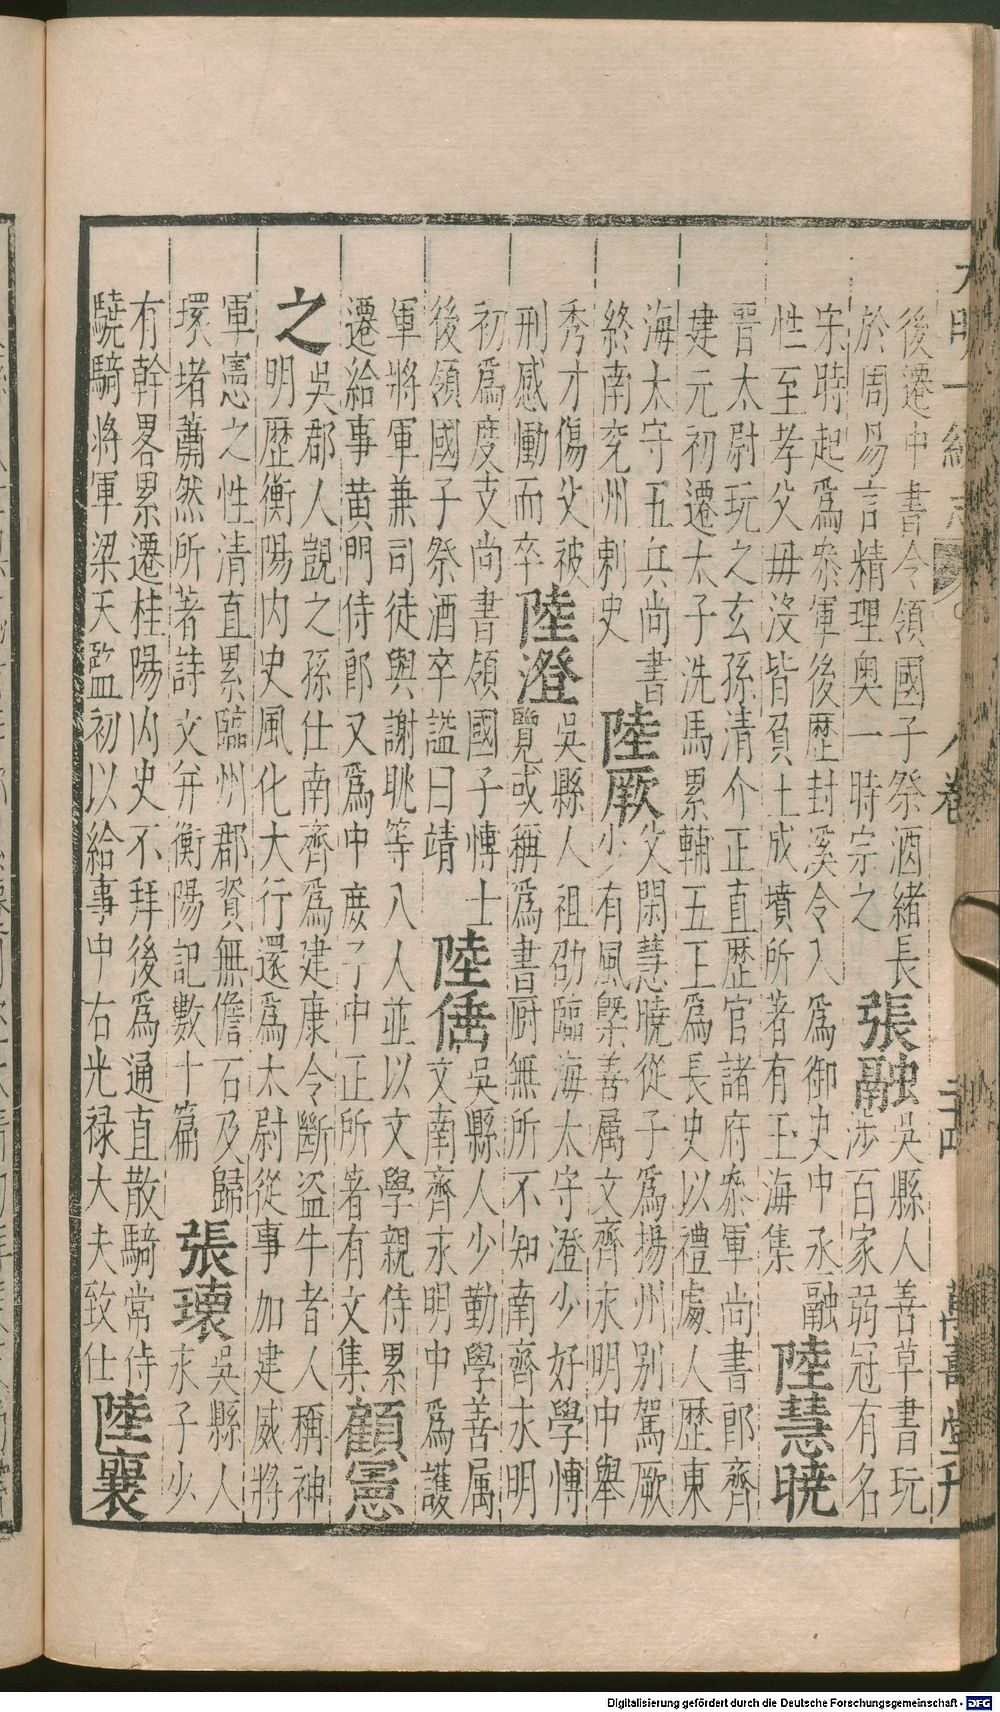 後遷中書令領國子祭酒緒長
於周易言精理奧一時宗之
張融
吳縣人善草書玩
涉百家弱冠有名
宋時起爲叅軍後歷封溪令入爲御史中丞融
性至孝父毋沒皆負土成墳所著有玉海集
陸慧曉
晉太尉玩之玄孫清介正直歷官諸府叅軍尚書郎齊
建元初遷太子洗馬累輔五王爲長史以禮處人歷東
海太守五兵尚書
終南兗州刺史
陸厥
父閑慧曉從子爲揚州别駕厥
少有風槩善属文齊永明中舉
秀才傷父被
刑感慟而卒
陸澄
吳縣人祖劭臨海太守澄少好學愽
覽或稱爲書厨無所不知南齊永明
初爲度支尚書領國子愽士
後領國子祭酒卒謚曰靖
陸倕
吳縣人少勤學善属
文南齊永明中爲護
軍將軍兼司徒與謝眺等八人並以文學親侍累
遷給事黄門侍郎又爲中庻子中正所著有文集
顧憲
之
吳郡人覬之孫仕南齊爲建康令斷盗牛者人稱神
明歷衡陽内史風化大行還爲太尉從事加建威將
軍憲之性清直累臨州郡資無儋石及歸
環堵蕭然所著詩文并衡陽記數十篇
張瓌
吳縣人
永子少
有幹畧累遷桂陽内史不拜後爲通直散騎常侍
驍騎將軍梁天監初以給事中右光禄大夫致仕
陸襄